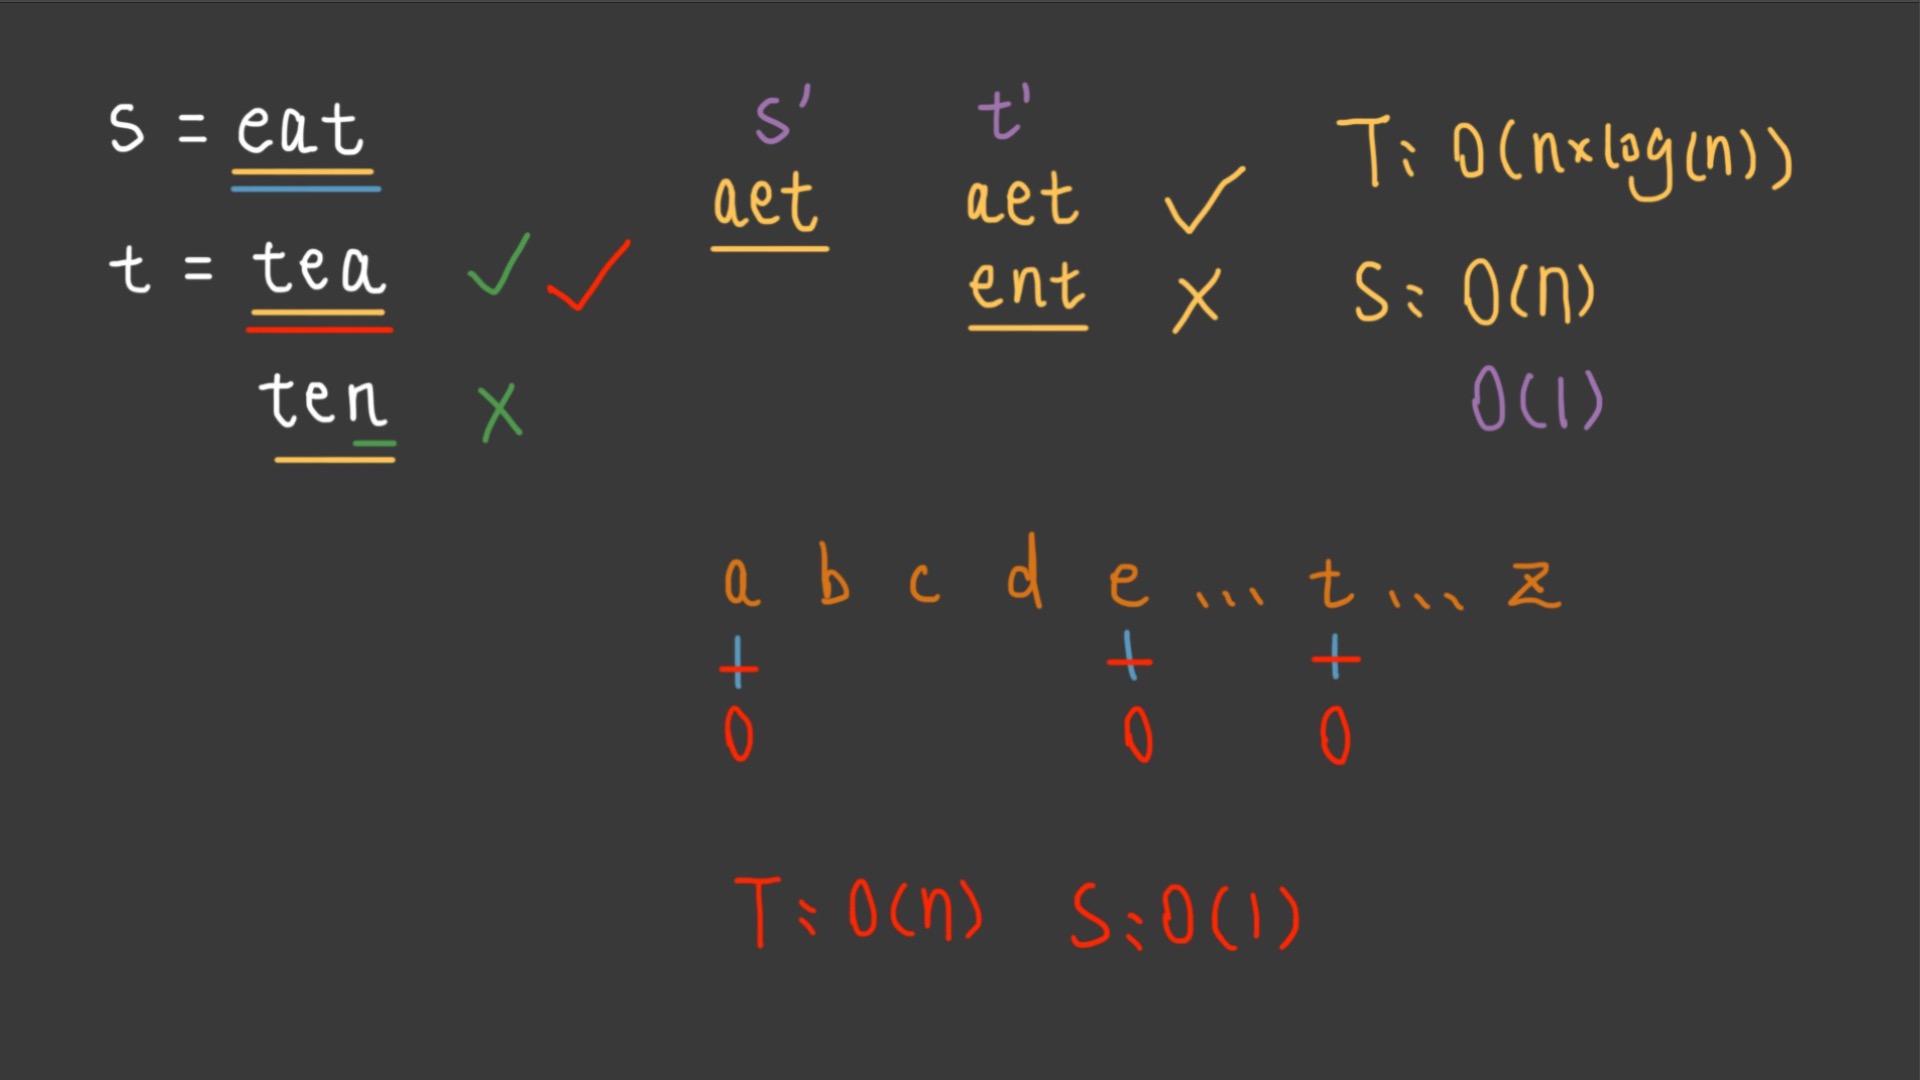 s = eat
t = tea ✓ ✓
ten ×
s' t'
aet aet ✓
ent ×
T: O(n×log(n))
S: O(n)
O(1)
a b c d e ... t ... z
+ + +
0 0 0
T: O(n) S: O(1)